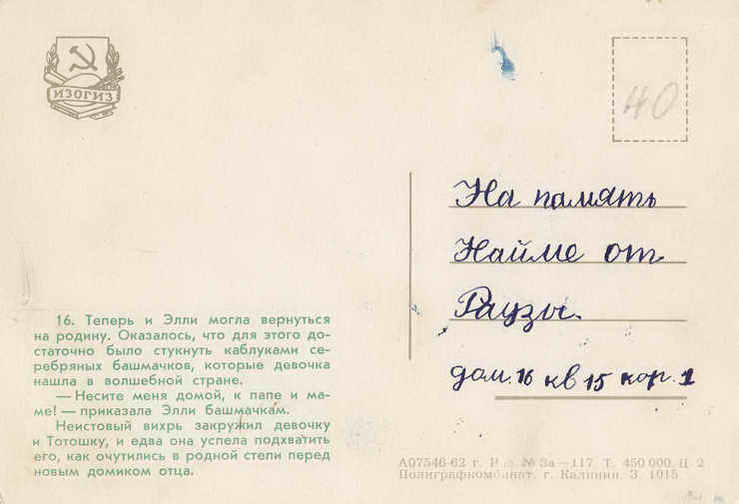 ИЗОГИЗ
40
На память
Найме от
Раузы.
дом. 16 кв 15 кор. 1
16. Теперь и Элли могла вернуться
на родину. Оказалось, что для этого до-
статочно было стукнуть каблуками се-
ребряных башмачков, которые девочка
нашла в волшебной стране.
— Несите меня домой, к папе и ма-
ме! — приказала Элли башмачкам.
Неистовый вихрь закружил девочку
и Тотошку, и едва она успела подхватить
его, как очутились в родной степи перед
новым домиком отца.
А07546-62 г. № 3а—117 Т. 450 000. Ц. 2
Полиграфкомбинат, г. Калинин. З. 1015